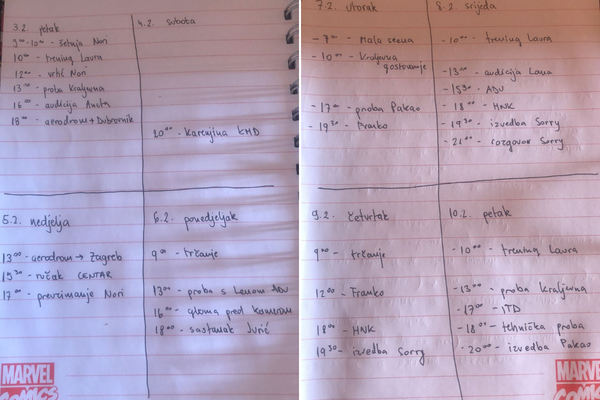 3.2. petak
9⁰⁰-10⁰⁰ - šetnja Nori
10⁰⁰ - trening Laura
12⁰⁰ - vrtić Nori
13⁰⁰ proba Kraljevna
16⁰⁰ - audicija Aneta
18⁰⁰ - aerodrom → Dubrovnik
4.2. subota
20⁰⁰ - Karenjina KMD
5.2. nedjelja
13⁰⁰ - aerodrom → Zagreb
15³⁰ - ručak CENTAR
17⁰⁰ - preuzimanje Nori
6.2. ponedjeljak
9⁰⁰ - trčanje
13⁰⁰ - proba s Lenom ADU
16⁰⁰ - gluma pred kamerom
18⁰⁰ - sastanak Jurić
MARVEL
COMICS
7.2. utorak
- 7⁰⁰ - Mala scena
- 10⁰⁰ - Kraljevna
gostovanje
- 17⁰⁰ - proba Pakao
- 19³⁰ - Franko
8.2. srijeda
- 10⁰⁰ - trening Laura
- 13⁰⁰ - audicija Lana
- 15³⁰ - ADU
- 18⁰⁰ - HNK
- 19³⁰ - izvedba Sorry
- 21⁰⁰ - razgovor Sorry
9.2. četvrtak
9⁰⁰ - trčanje
12⁰⁰ - Franko
18⁰⁰ - HNK
19³⁰ - izvedba Sorry
10.2. petak
- 10⁰⁰ - trening Laura
- 13⁰⁰ - proba Kraljevna
- 17⁰⁰ - ITD
- 18⁰⁰ - tehnička proba
- 20⁰⁰ - izvedba Pakao
MARVEL
COMICS